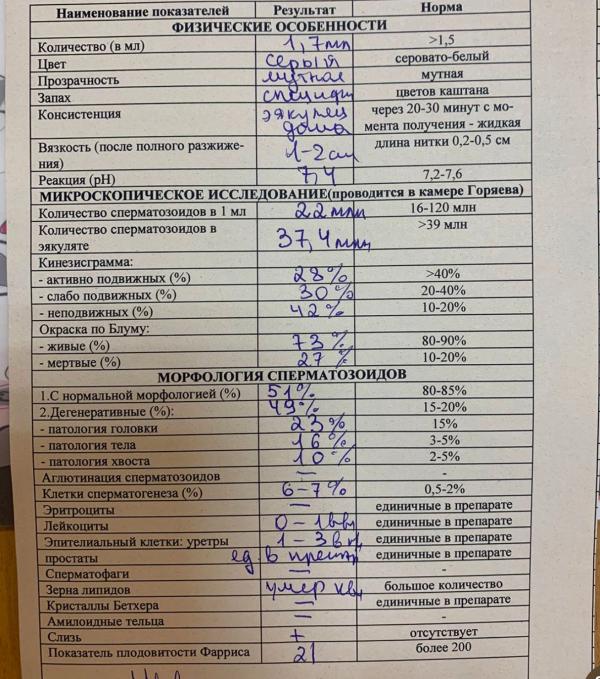 Наименование показателей Результат Норма
ФИЗИЧЕСКИЕ ОСОБЕННОСТИ
Количество (в мл) 1,7 мл >1,5
Цвет серый серовато-белый
Прозрачность мутная мутная
Запах специф цветов каштана
Консистенция эякулят дома через 20-30 минут с мо-
мента получения - жидкая
Вязкость (после полного разжиже- 1-2 см длина нитки 0,2-0,5 см
ния)
Реакция (pH) 7,4 7,2-7,6
МИКРОСКОПИЧЕСКОЕ ИССЛЕДОВАНИЕ(проводится в камере Горяева)
Количество сперматозоидов в 1 мл 22 млн 16-120 млн
Количество сперматозоидов в 37,4 млн >39 млн
эякуляте
Кинезисграмма:
- активно подвижных (%) 28% >40%
- слабо подвижных (%) 30% 20-40%
- неподвижных (%) 42% 10-20%
Окраска по Блуму:
- живые (%) 73% 80-90%
- мертвые (%) 27% 10-20%
МОРФОЛОГИЯ СПЕРМАТОЗОИДОВ
1.С нормальной морфологией (%) 51% 80-85%
2.Дегенеративные (%): 49% 15-20%
- патология головки 23% 15%
- патология тела 16% 3-5%
- патология хвоста 10% 2-5%
Аглютинация сперматозоидов — -
Клетки сперматогенеза (%) 6-7% 0,5-2%
Эритроциты — единичные в препарате
Лейкоциты 0-1 единичные в препарате
Эпителиальный клетки: уретры 1-3 единичные в препарате
простаты ед. в единичные в препарате
Сперматофаги — -
Зерна липидов умер большое количество
Кристаллы Бетхера — единичные в препарате
Амилоидные тельца — -
Слизь + отсутствует
Показатель плодовитости Фарриса 21 более 200